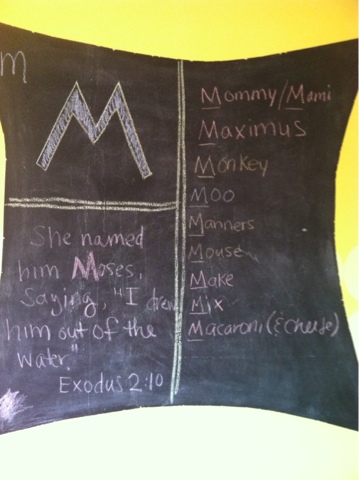 m
M
She named
him Moses,
Saying, "I drew
him out of the
water."
Exodus 2:10
Mommy/Mami
Maximus
Monkey
Moo
Manners
Mouse
Make
Mix
Macaroni (& cheese)